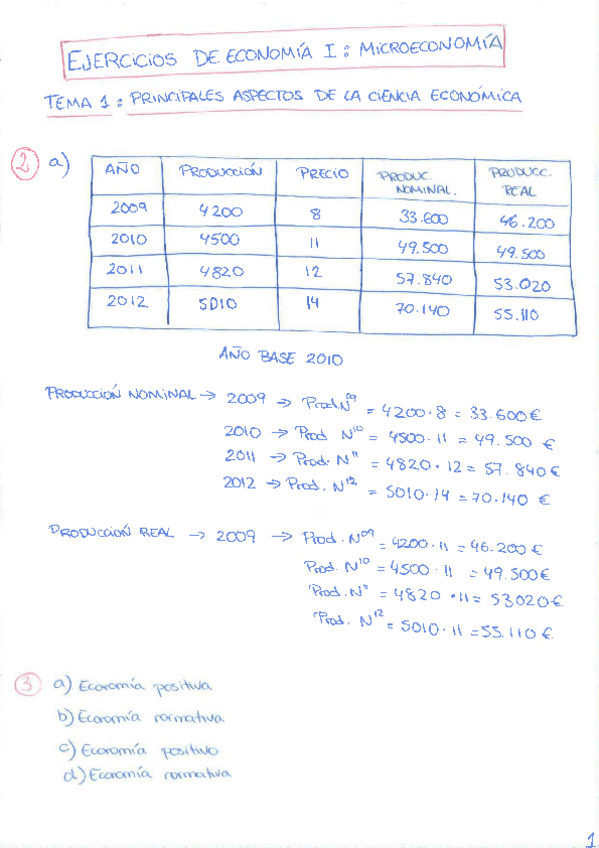 EJERCICIOS DE ECONOMÍA I: MICROECONOMÍA
TEMA 1: PRINCIPALES ASPECTOS DE LA CIENCIA ECONÓMICA
2 a)
AÑO PRODUCCIÓN PRECIO PRODUC. NOMINAL. PRODUCC. REAL
2009 4200 8 33.600 46.200
2010 4500 11 49.500 49.500
2011 4820 12 57.840 53.020
2012 5010 14 70.140 55.110
AÑO BASE 2010
PRODUCCIÓN NOMINAL → 2009 → Prod.N⁰⁹ = 4200·8 = 33.600€
2010 → Prod N¹⁰ = 4500·11 = 49.500 €
2011 → Prod. N¹¹ = 4820·12 = 57.840€
2012 → Prod. N¹² = 5010·14 = 70.140 €
PRODUCCIÓN REAL → 2009 → Prod. N⁰⁹ = 4200·11 = 46.200€
Prod. N¹⁰ = 4500·11 = 49.500€
Prod. N¹¹ = 4820·11 = 53020€
Prod. N¹² = 5010·11 = 55.110€
3 a) Economía positiva
b) Economía normativa
c) Economía positivo
d) Economía normativa
1